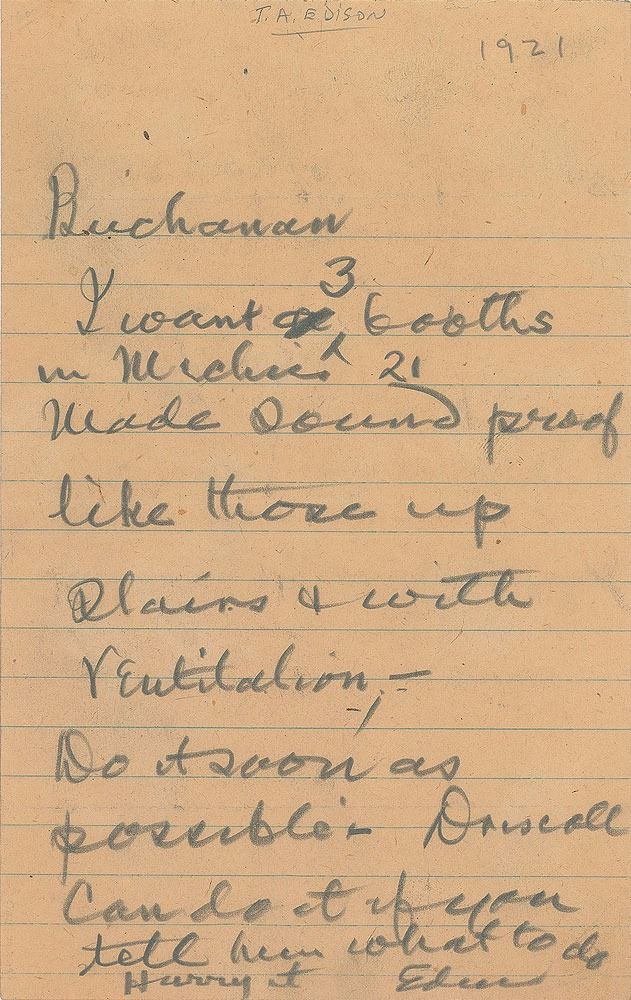 T. A. EDISON
1921
Buchanan
3
I want booths
in 21
Made sound proof
like those up
Stairs & with
Ventilation,—
Do it soon as
possible- Driscoll
Can do it if you
tell him what to do
Hurry it Edison